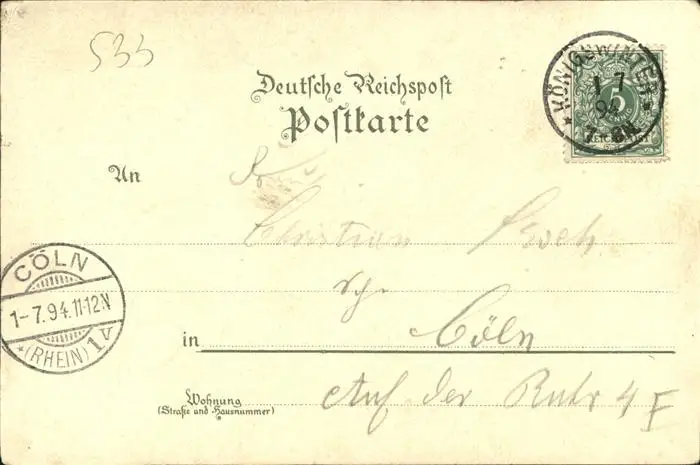 533
Deutsche Reichspost
Postkarte
KÖNIGSWINTER
1 7
94
7-8N
5
An
Christian
CÖLN
1-7.94.11-12N
(RHEIN) 1V
in Cöln
Wohnung
(Straße und Hausnummer)
Auf der Ruhr 4